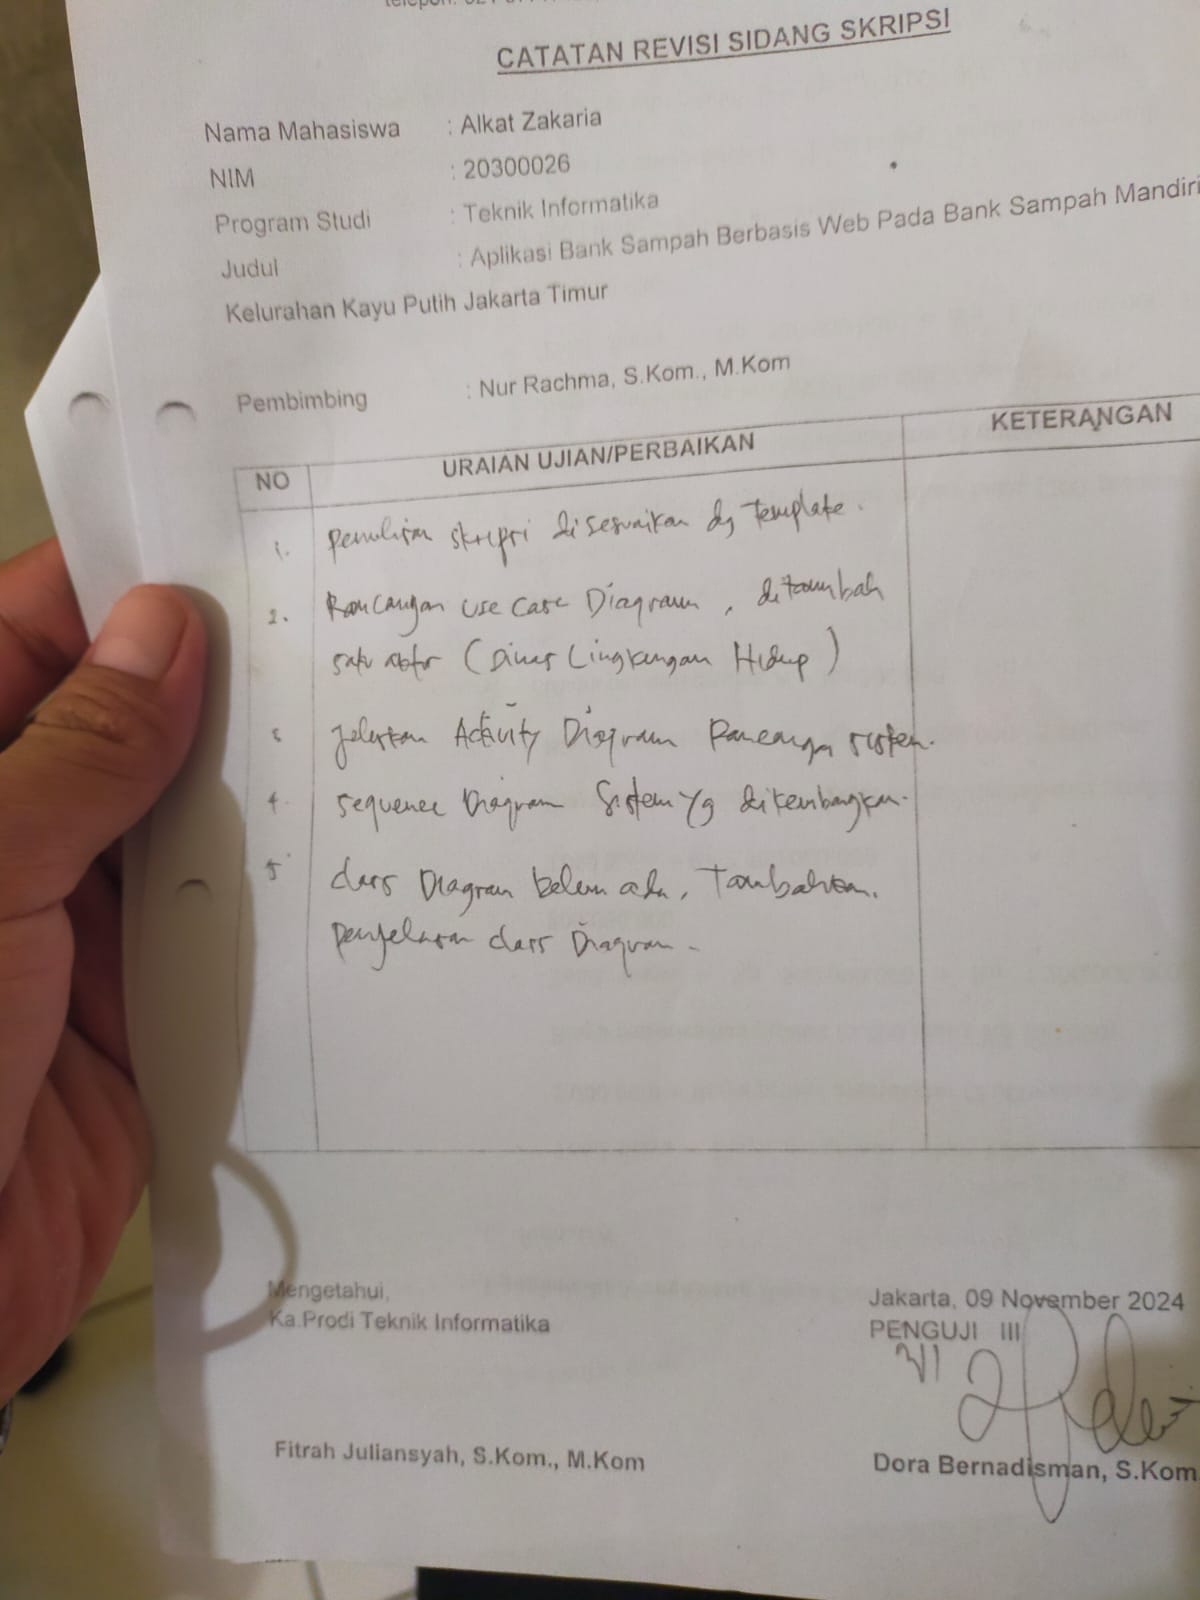 CATATAN REVISI SIDANG SKRIPSI
Nama Mahasiswa : Alkat Zakaria
NIM : 20300026
Program Studi : Teknik Informatika
Judul : Aplikasi Bank Sampah Berbasis Web Pada Bank Sampah Mandiri
Kelurahan Kayu Putih Jakarta Timur
Pembimbing : Nur Rachma, S.Kom., M.Kom
NO URAIAN UJIAN/PERBAIKAN KETERANGAN
1. Penulisan skripsi disesuaikan dg template.
2. Rancangan Use Case Diagram, ditambah
satu aktor (Dinas Lingkungan Hidup)
3 Jelaskan Activity Diagram Rancangan sistem.
4. Sequence Diagram Sistem yg dikembangkan.
5 class Diagram belum ada, Tambahkan.
Penjelasan class Diagram.
Mengetahui,
Ka.Prodi Teknik Informatika
Jakarta, 09 November 2024
PENGUJI III
Fitrah Juliansyah, S.Kom., M.Kom
Dora Bernadisman, S.Kom